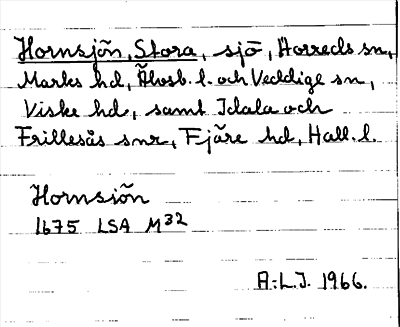 Hornsjön, Stora, sjö, Horreds sn,
Marks hd, Älvsb. l. och Veddige sn,
Viske hd, samt Idala och
Frillesås snr, Fjäre hd, Hall. l.
Hornsiön
1675 LSA M32
A:L.J. 1966.